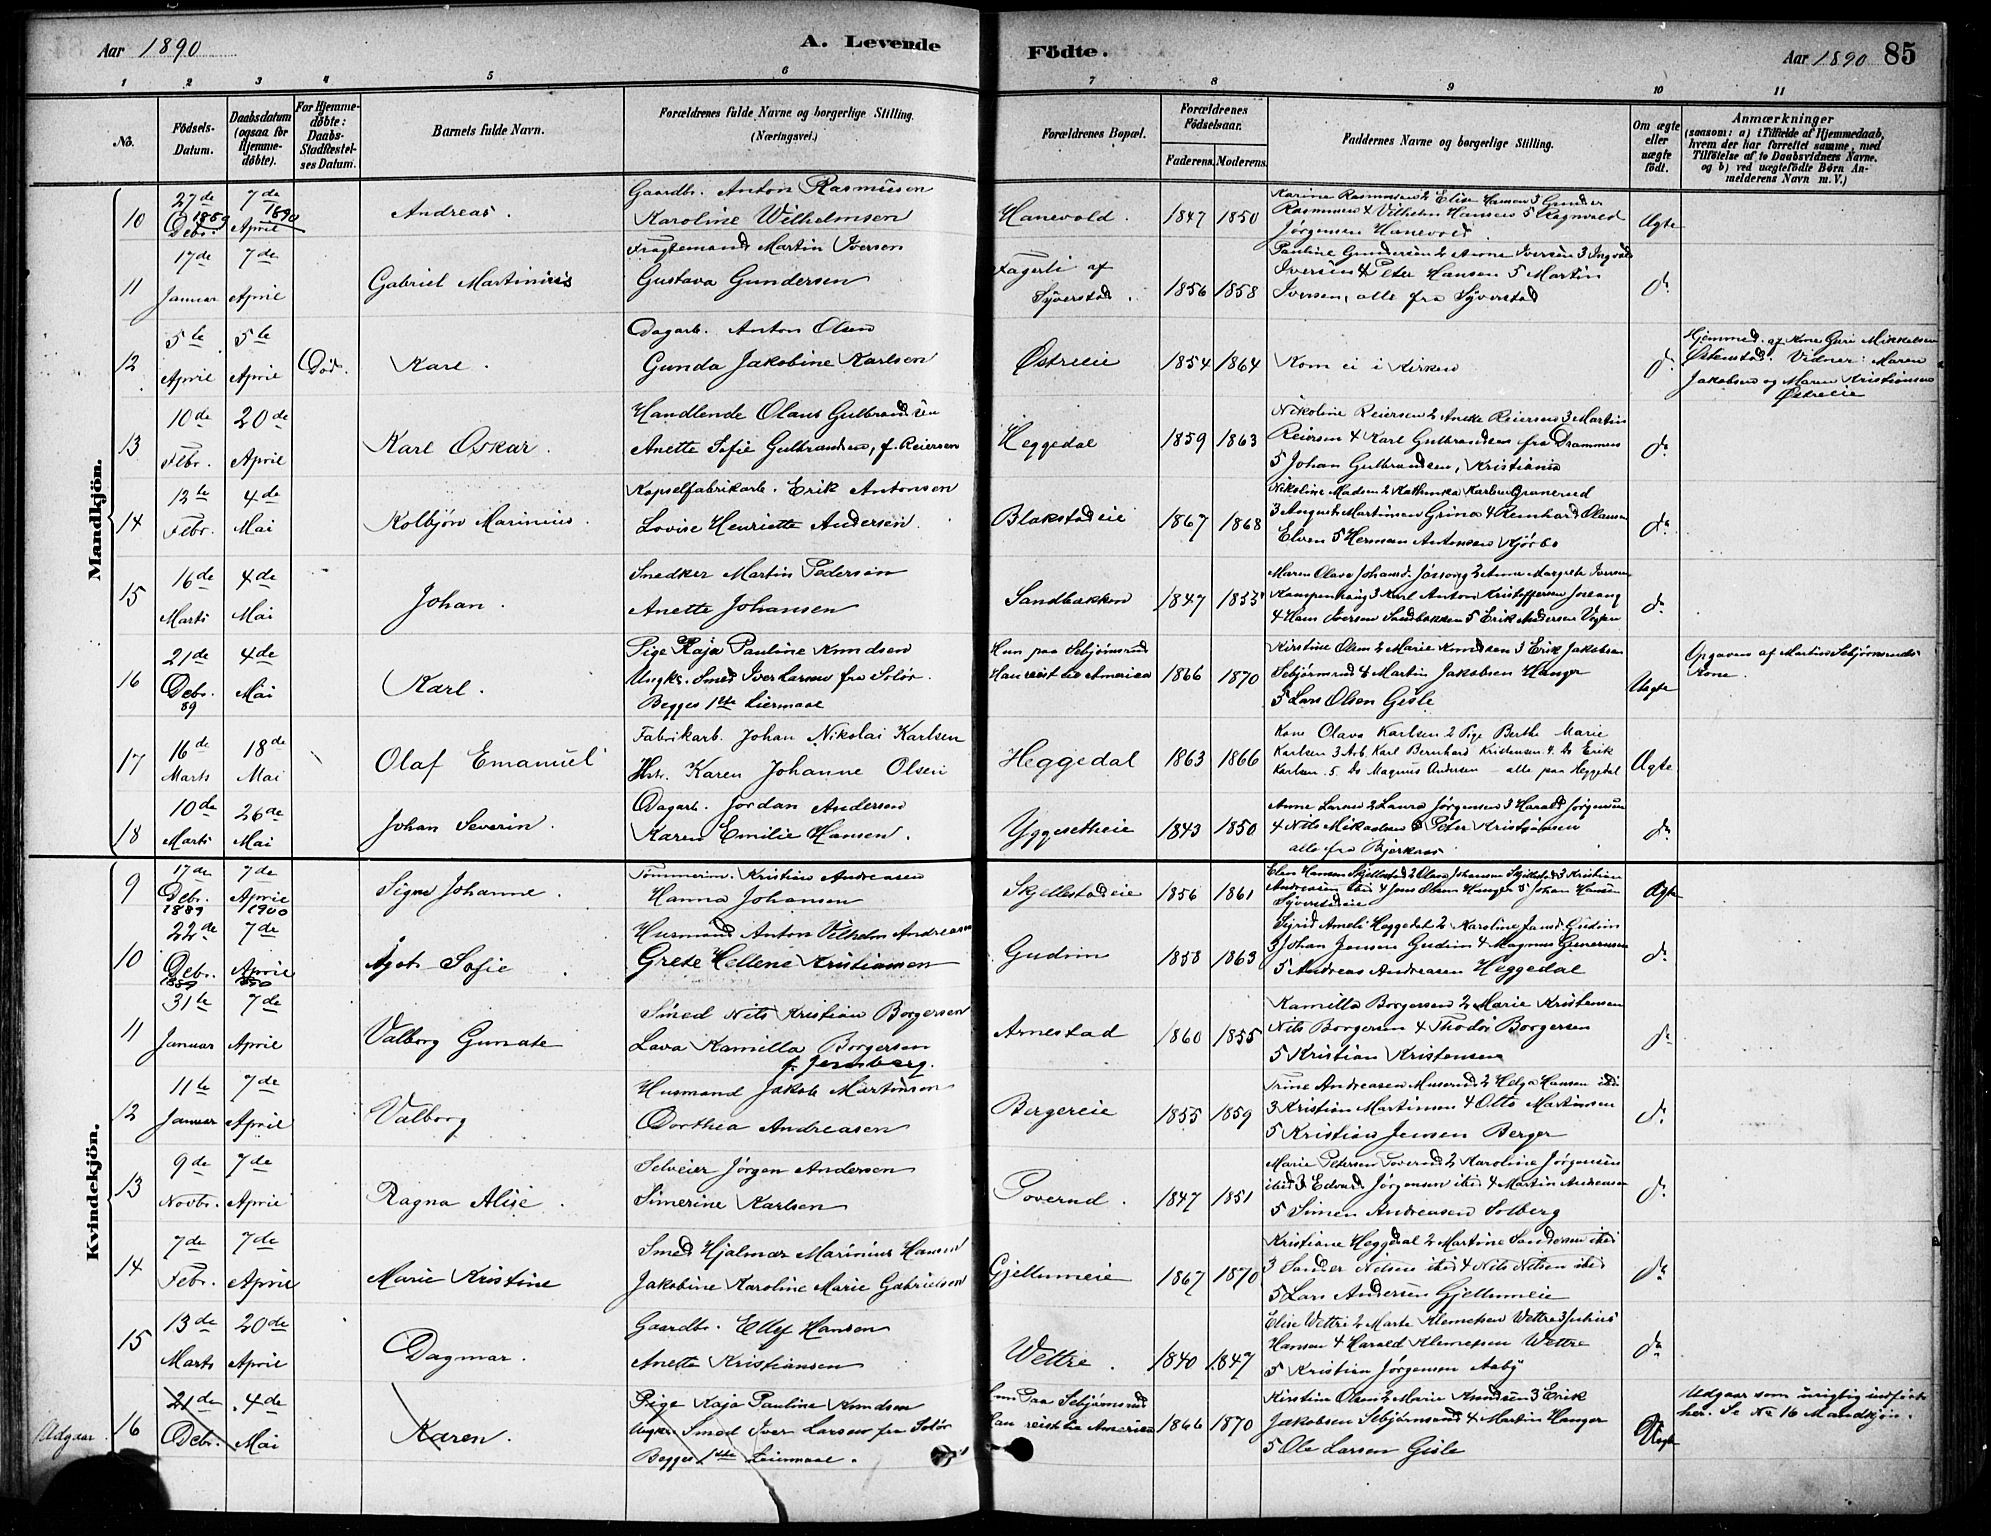 Aar 1890
A. Levende
Födte.
Aar 1890 85
1 2 3 4 5 6 7 8 9 10 11
No.
Födsels-Datum.
Daabsdatum (ogsaa for Hjemme-döbte).
For Hjemme-döbte: Daabs-Stadfæstel-ses Datum.
Barnets fulde Navn.
Forældrenes fulde Navne og borgerlige Stilling. (Næringsvei.)
Forældrenes Bopæl.
Forældrenes Födselsaar.
Faderens. Moderens.
Faddernes Navne og borgerlige Stilling.
Om ægte eller uægte födt.
Anmærkninger
(saasom: a) i Tilfælde af Hjemmedaab, hvem der har forrettet samme, med Tilföielse af to Daabsvidners Navne. og b) ved uægtefödte Börn An-melderens Navn m. V.)
Mandkjön.
10 27de Debr. 1889 7de April 1890 Andreas.
Gaardbr. Anton Rasmussen
Karoline Wilhelmsen
Hanevold. 1847 1850
Karine Rasmussen 2 Elise Hansen 3 Gunder
Rasmussen 4 Vilhelm Hansen 5 Ragnvald
Jørgensen Hanevold.
Ægte
11 17de Januar 7de April Gabriel Martinius
Fragtemand Martin Iversen
Gustava Gundersen
Fagerli af
Syverstad. 1856 1858
Pauline Gundersen 2 Anne Iversen 3 Ingvald
Iversen 4 Peter Hansen 5 Martin
Iversen, alle fra Syverstad
do
12 5te April 5te April Död. Karl.
Dagarb. Anton Olsen
Gunda Jakobine Karlsen
Østreeie 1854 1864
Kom ei i Kirken
do
Hjemmed. af Kone Guri Mikkelsen
Østenstad. Vidner: Maren
Jakobsen og Maren Kristiansen
Østreeie
13 10de Febr. 20de April Karl Oskar.
Handlende Olaus Gulbrandsen
Anette Sofie Gulbrandsen, f. Reiersen
Heggedal 1859 1863
Nikoline Reiersen 2 Aneke Reiersen 3 Martin
Reiersen 4 Karl Gulbrandsen fra Drammen
5 Johan Gulbrandsen, Kristiania
do
14 13te Febr. 4de Mai Kolbjörn Marinius.
Kapselfabrikarb. Erik Antonsen
Lovise Henriette Andersen.
Blakstadeie 1867 1868
Nikoline Madsen 2 Kathinka Karlsen Granerud
3 August Martinsen Grina 4 Reinhard Olausen
Elven 5 Herman Antonsen Kjörbo
do
15 16de Marts 4de Mai Johan.
Snedker Martin Pedersen
Anette Johansen
Sandbakken 1847 1853
Maren Olava Johansd. Jössong 2 Anne Margrete Iversen
Kampenhaug 3 Karl Anton Kristoffersen Jossang
4 Hans Iversen Sandbakken 5 Erik Andersen
do
16 21de Debr. 89 4de Mai Karl.
Pige Kaja Pauline Knudsen
Ungk. Smed Iver Larsen fra Solör.
Begges 1ste Leiermaal
Hun paa Sebjörnsrud
Han reist til Amerika 1866 1870
Kirstine Olsen 2 Marie Knudsen 3 Erik Jakobsen
Sebjörnrud 4 Martin Jakobsen Hanger
5 Lars Olsen Gisle
Uægte
Opgaven af Martin Sebjörnsruds
Kone.
17 16de Marts 18de Mai Olaf Emanuel
Fabrikarb. Johan Nikolai Karlsen
Hst. Karen Johanne Olsen
Heggedal 1863 1866
Kone Olava Karlsen 2 Pige Berthe Marie
Karlsen 3 Arb. Karl Bernhard Kristensen 4. Do Erik
Karlsen 5. Do Magnus Andersen – alle paa Heggedal
Ægte
18 10de Marts 26de Mai Johan Severin.
Dagarb. Jordan Andersen
Karen Emilie Hansen.
Yggesetheie 1843 1850
Anne Larsen 2 Laura Jørgensen 3 Harald Jørgensen
4 Nils Mikaelsen 5 Peter Kristiansen
alle fra Bjerkaas
do
Kvindekjön.
9 17de Debr. 1889 7de April 1900 Signe Johanne.
Tömmerm. Kristian Andreasen
Hanna Johansen
Skjellestadeie 1856 1861
Elen Hansen Skjellestad 2 Olava Johansen Skjellestad 3 Kristian
Andreasen ibid 4 Jens Olsen Hanger 5 Johan Hansen
Syverstadeie
Ægte
10 22de Debr. 1889 7de April 1890 Agot Sofie
Husmand Anton Vilhelm Andreasen
Grete Hellene Kristiansen
Gudim 1858 1863
Sigrid Ameli Heggedal 2 Karoline Jansd. Gudim
3 Johan Jensen Gudim 4 Magnus Gunersen
5 Andreas Andreasen Heggedal
do
11 31te Januar 7de April Valborg Gunate
Smed Nils Kristian Borgersen
Lava Kamilla Borgersen
f. Jernberg.
Arnestad 1860 1855
Kamilla Borgersen 2 Marie Kristensen
Nils Borgersen 4 Thodor Borgersen
5 Kristian Kristensen
do
12 11te Januar 7de April Valborg
Husmand Jakob Martinsen
Dorthea Andreasen
Bergereie 1855 1859
Trine Andreasen Muserud 2 Helga Hansen ibid
3 Kristian Martinsen 4 Otto Martinsen
5 Kristian Jensen Berger
do
13 9de Novbr. 7de April Ragna Alise.
Selveier Jörgen Andersen
Simerine Karlsen
Toverud. 1847 1851
Marie Petersen Toverud 2 Karoline Jörgensen
ibid 3 Edvard Jörgensen ibid 4 Martin Andreasen
5 Simen Andreasen Solberg
do
14 7de Febr. 7de April Marie Kristine
Smed Hjalmar Marinius Hansen
Jakobine Karoline Marie Gabrielsen
Gjellumeie 1867 1870
Kristiane Heggedal 2 Martine Sandersen ibid
3 Sander Nilsen ibid 4 Nils Nilsen ibid
5 Lars Andersen Gjellumeie
do
15 13de Marts 20de April Dagmar.
Gaardbr. Ellef Hansen
Anette Kristiansen
Wettre. 1840 1847
Elise Wettre 2 Marte Klemetsen Wettre 3 Julius
Hansen 4 Harald Klemetsen Wettre
5 Kristian Jörgensen Aaby
do
Udgaar. 16 21de Debr. 4de Mai Karen.
Pige Kaja Pauline Knudsen
Ungk. Smed Iver Larsen fra Solör
Begges 1ste Leiermaal.
Hun Paa Sebjörnsrud
Han reist til Amerika 1866 1870
Kirstine Olsen 2 Marie Knudsen 3 Erik
Jakobsen Sebjörnsrud 4 Martin Hanger
5 Ole Larsen Gisle
Uægte
Udgaar som urigtig indført
her. Se No 16 Mandkjön.